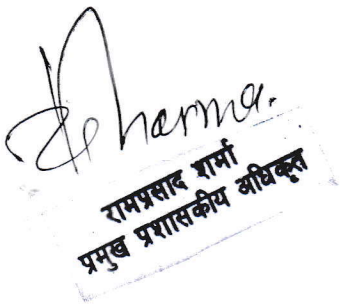 Sharma.
रामप्रसाद शर्मा
प्रमुख प्रशासकीय अधिकृत